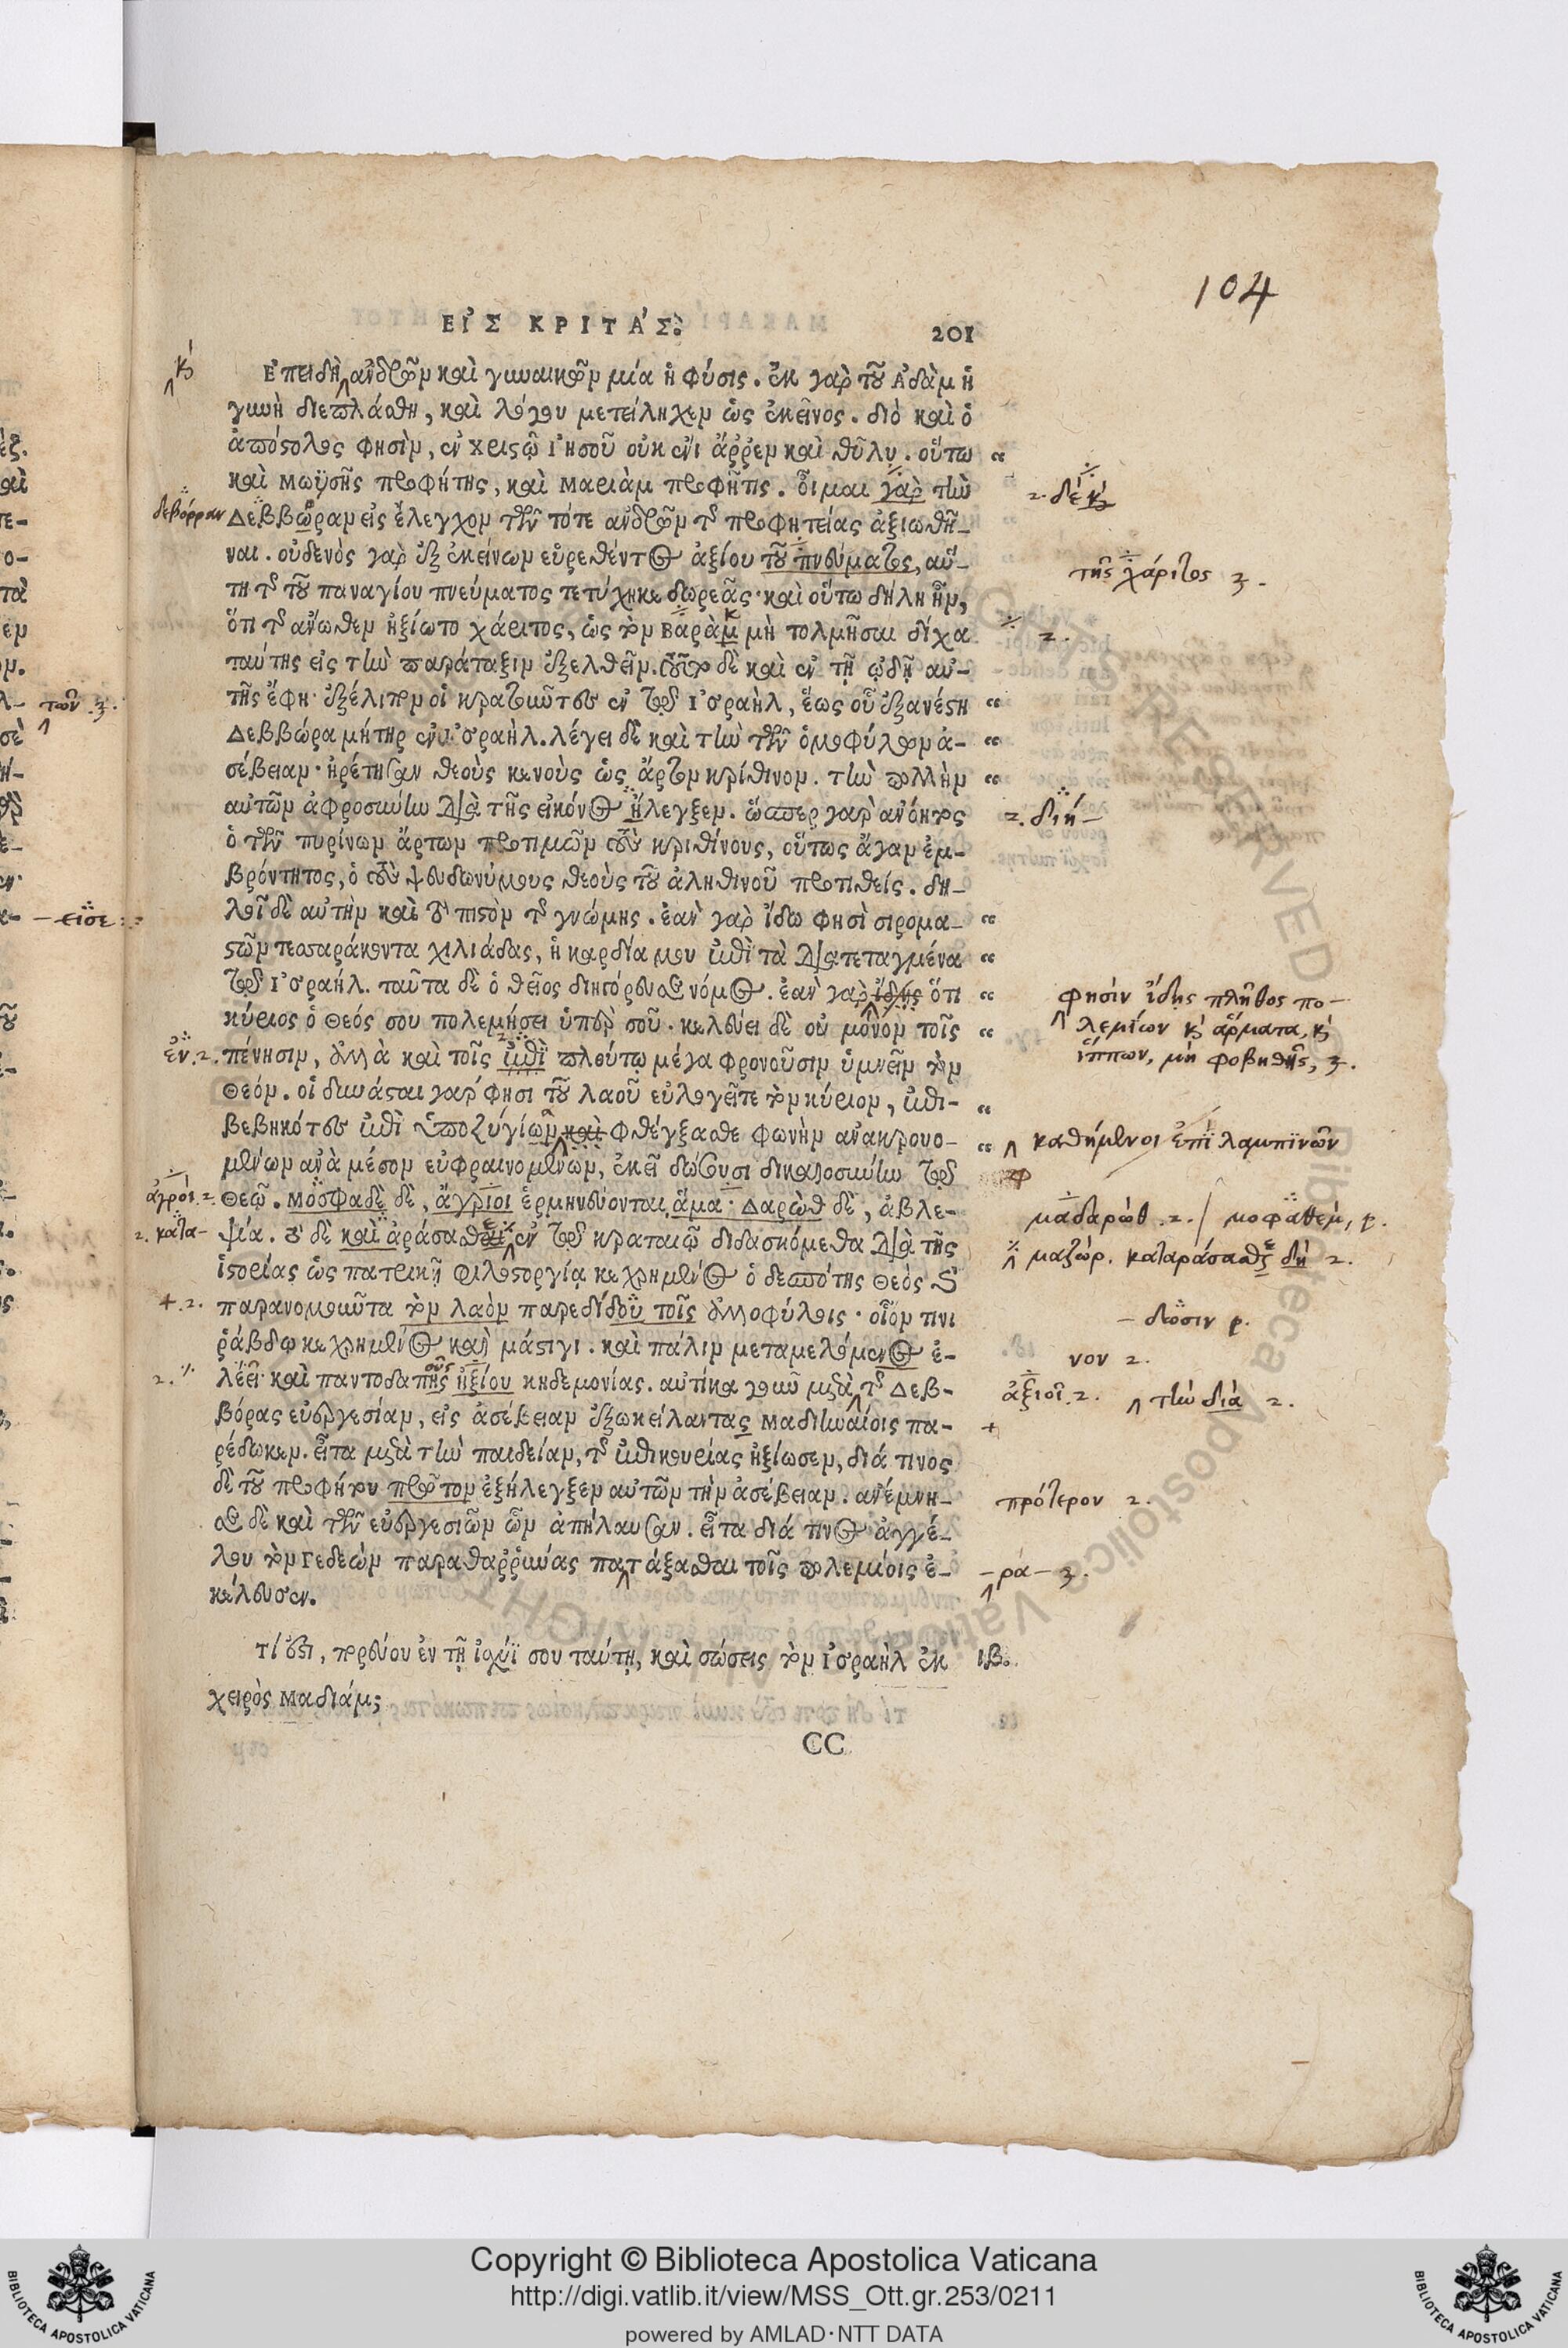 104
ΕἸΣ ΚΡΙΤΆΣ.
201
Ἐπειδὴ ἀνδρῶν καὶ γυναικῶν μία ἡ φύσις. ἐκ γὰρ τοῦ Ἀδὰμ ἡ
γυνὴ διεπλάσθη, καὶ λόγου μετείληχεν ὡς ἐκεῖνος. διὸ καὶ ὁ
ἀπόστολος φησὶν, ἐν χριστῷ Ἰησοῦ οὐκ ἔνι ἄῤῥεν καὶ θῆλυ. οὕτω
καὶ Μωϋσῆς προφήτης, καὶ Μαριὰμ προφῆτις. οἶμαι γὰρ τὴν
2. δέ καὶ
δεβόρραν
Δεββῶραν εἰς ἔλεγχον τῶν τότε ἀνδρῶν τῆς προφητείας ἀξιωθῆ-
ναι. οὐδενὸς γὰρ ἐξ ἐκείνων εὑρεθέντος ἀξίου τοῦ πνεύματος, αὕ-
τῆς χάριτος 3.
τη τῆς τοῦ παναγίου πνεύματος τετύχηκε δωρεᾶς· καὶ οὕτω δήλη ἦν,
ὅτι τῆς ἄνωθεν ἠξίωτο χάριτος, ὡς τὸν Βαρὰκ μὴ τολμῆσαι δίχα
2.
ταύτης εἰς τὴν παράταξιν ἐξελθεῖν. τοῦτο δὲ καὶ ἐν τῇ ᾠδῇ αὐ-
τῆς ἔφη· ἐξέλιπον οἱ κρατοῦντες ἐν τῷ Ἰσραὴλ, ἕως οὗ ἐξανέστη
τῶν 3.
Δεββώρα μήτηρ ἐν Ἰσραὴλ. λέγει δὲ καὶ τὴν τῶν ὁμοφύλων ἀ-
σέβειαν· ᾑρέτησαν θεοὺς κενοὺς ὡς ἄρτον κρίθινον. τὴν πολλὴν
αὐτῶν ἀφροσύνην διὰ τῆς εἰκόνος ἤλεγξεν. ὥσπερ γὰρ ἀνόητος
2. διή-
ὁ τῶν πυρίνων ἄρτων προτιμῶν τοὺς κριθίνους, οὕτως ἄγαν ἐμ-
βρόντητος, ὁ τοὺς ψευδωνύμους θεοὺς τοῦ ἀληθινοῦ προτιθείς. δη-
λοῖ δὲ αὐτὴν καὶ τὸ πιστὸν τῆς γνώμης. ἐὰν γὰρ ἴδω φησὶ σιρομα-
-εῖσε
στῶν τεσσαράκοντα χιλιάδας, ἡ καρδία μου ἐπὶ τὰ διατεταγμένα
τῷ Ἰσραήλ. ταῦτα δὲ ὁ θεῖος διηγόρευσε νόμος. ἐὰν γὰρ ἴδῃς ὅτι
φησὶν ἴδῃς πλῆθος πο-
λεμίων καὶ ἅρματα, καὶ
ἵππων, μὴ φοβηθῇς, 3.
κύριος ὁ Θεός σου πολεμήσει ὑπὲρ σοῦ· κελεύει δὲ οὐ μόνον τοῖς
ἐν. 2.
πένησιν, ἀλλὰ καὶ τοῖς ἐπὶ πλούτῳ μέγα φρονοῦσιν ὑμνεῖν τὸν
Θεόν. οἱ δυνάσται γάρ φησι τοῦ λαοῦ εὐλογεῖτε τὸν κύριον, ἐπι-
βεβηκότες ἐπὶ ὑποζύγίων καὶ φθέγξασθε φωνὴν ἀνακρουο-
καθήμενοι ἐπὶ λαμπϊνῶν
μένων ἀνὰ μέσον εὐφραινομένων, ἐκεῖ δώσουσι δικαιοσύνην τῷ
ἀγροί. 2.
Θεῷ. Μόσφαδὲ δὲ, ἄγριοι ἑρμηνεύονται, ἅμα· Δαρὼθ δὲ, ἀβλε-
μαδαρώθ. 2. / μοφάθεμ, ρ.
2. κατα-
ψία. τὸ δὲ καὶ ἀράσασθαι ἐν τῷ κραταιῷ διδασκόμεθα διὰ τῆς
μαζώρ. καταράσασθε δή 2.
ἱστορίας ὡς πατρικῇ φιλοστοργίᾳ κεχρημένος ὁ δεσπότης Θεὸς
+. 2.
παρανομοῦντα τὸν λαὸν παρεδίδου τοῖς ἀλλοφύλοις· οἷόν τινι
- δόσιν ρ.
ῥάβδῳ κεχρημένος καὶ μάστιγι. καὶ πάλιν μεταμελόμενος ἐ-
νον 2.
λέει καὶ παντοδαπῆς ἠξίου κηδεμονίας. αὐτίκα γοῦν μετὰ τῆς Δεβ-
ἀξιοῖ. 2. τὴν διά 2.
βόρας εὐεργεσίαν, εἰς ἀσέβειαν ἐξωκείλαντας Μαδιηναίοις πα-
ρέδωκεν. εἶτα μετὰ τὴν παιδείαν, τῆς ἐπικουρίας ἠξίωσεν, διά τινος
δὲ τοῦ προφήτου πρῶτον ἐξήλεγξεν αὐτῶν τὴν ἀσέβειαν. ἀνέμνη-
πρότερον 2.
σε δὲ καὶ τῶν εὐεργεσιῶν ὧν ἀπήλαυσαν. εἶτα διά τινος ἀγγέ-
λου τὸν Γεδεὼν παραθαῤῥύνας πατάξασθαι τοῖς πολεμίοις ἐ-
-ρά- 3.
κέλευσεν.
Τί ἐστι, πορεύου ἐν τῇ ἰσχύϊ σου ταύτῃ, καὶ σώσεις τὸν Ἰσραὴλ ἐκ
ιβ.
χειρὸς Μαδιάμ;
CC
Copyright © Biblioteca Apostolica Vaticana
http://digi.vatlib.it/view/MSS_Ott.gr.253/0211
powered by AMLAD·NTT DATA
BIBLIOTECA APOSTOLICA VATICANA
BIBLIOTECA APOSTOLICA VATICANA